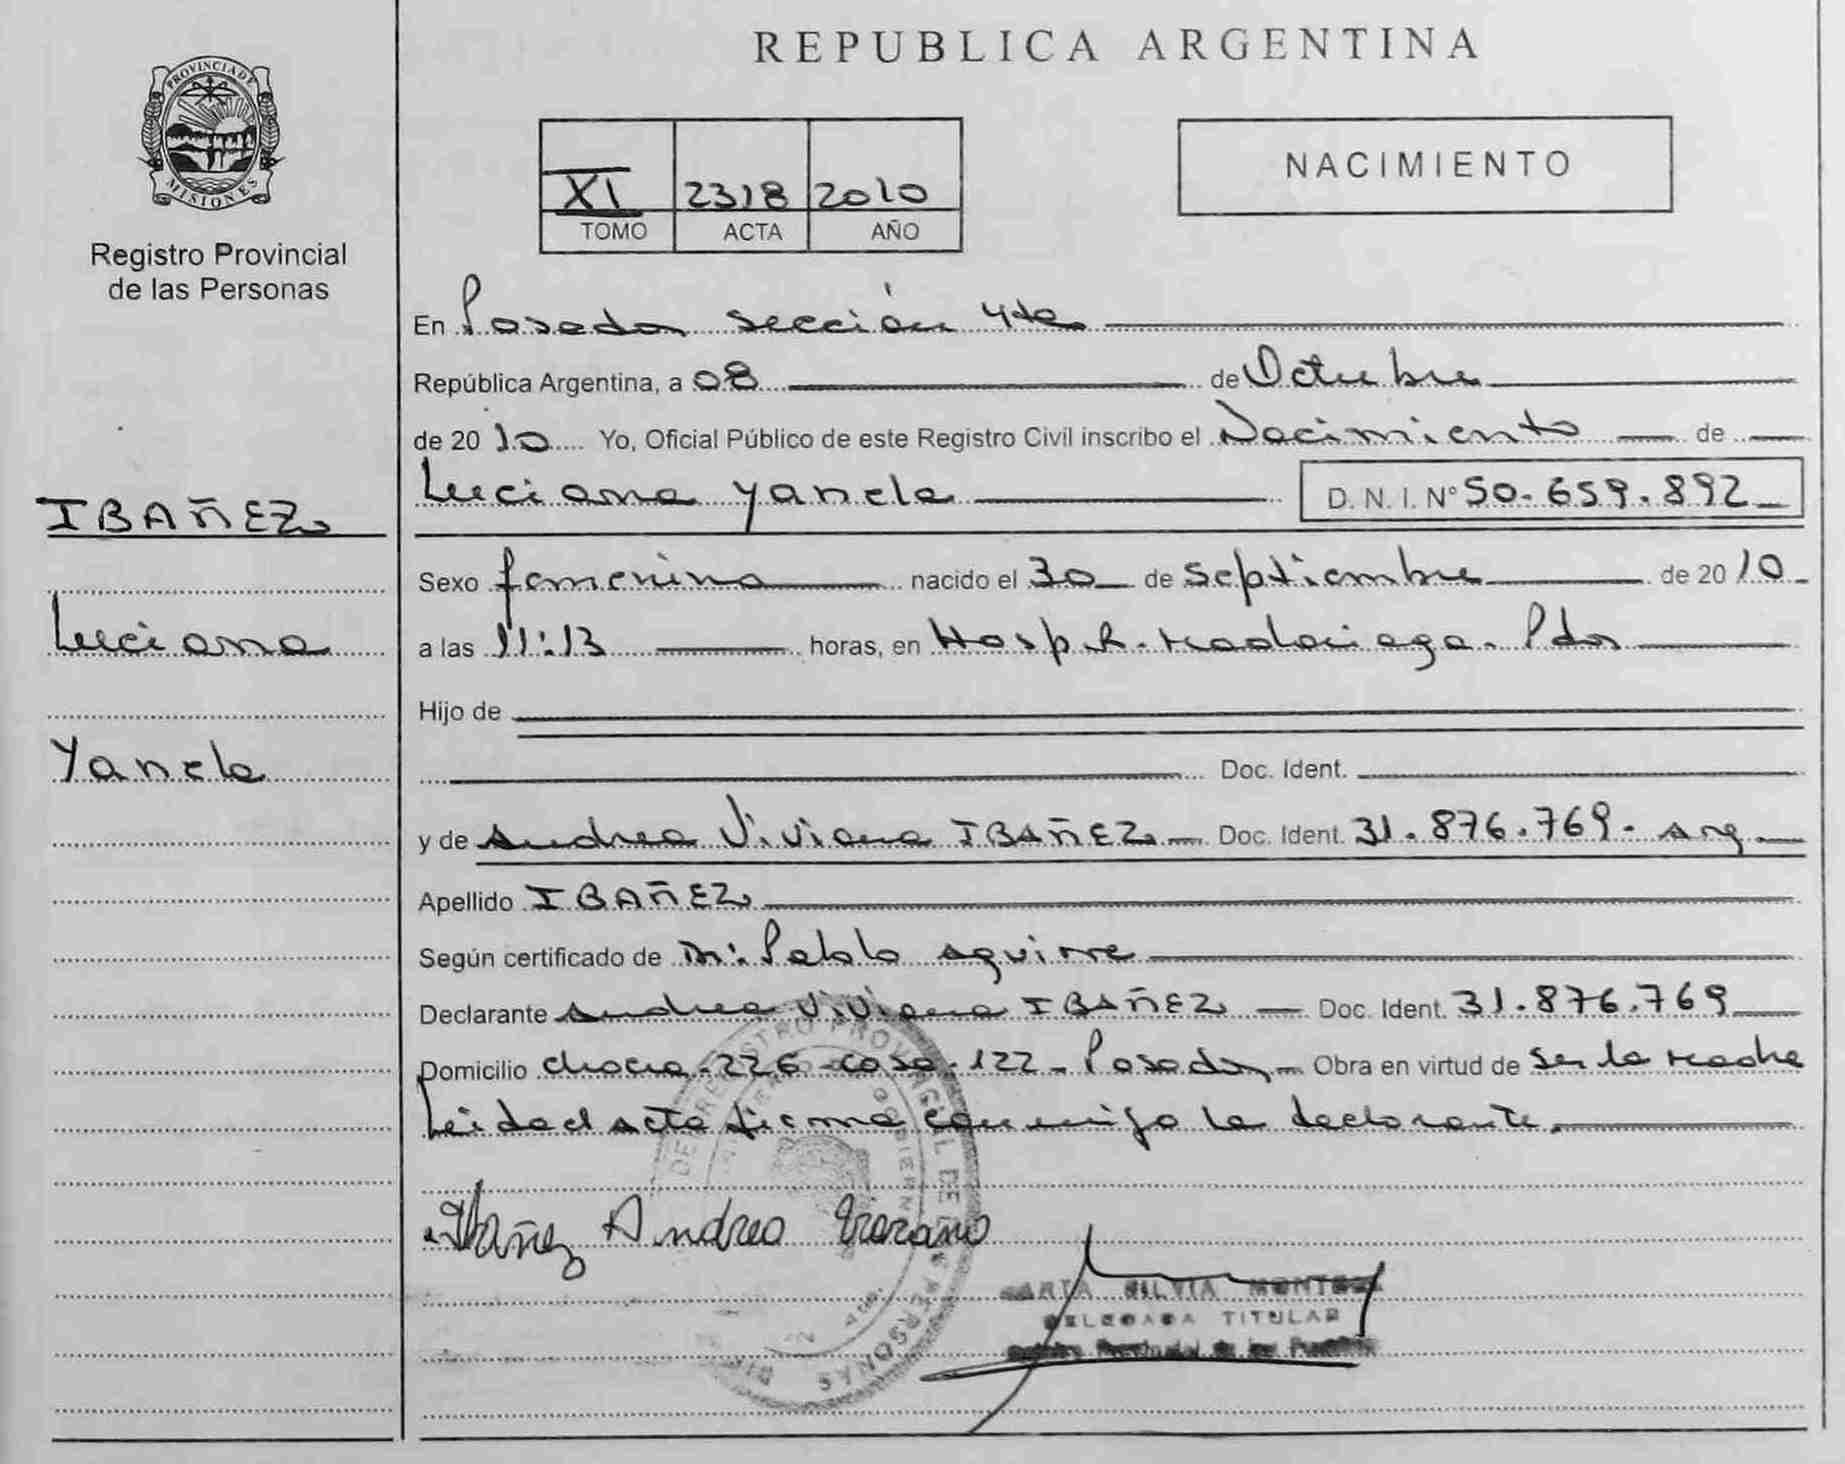 REPUBLICA ARGENTINA
PROVINCIA DE
MISIONES
Registro Provincial
de las Personas
XI 2318 2010
TOMO ACTA AÑO
NACIMIENTO
IBAÑEZ
Luciana
Yanela
En Posadas sección 4ta
República Argentina, a 08 de Octubre
de 2010 Yo, Oficial Público de este Registro Civil inscribo el Nacimiento de
Luciana Yanela D. N. I. N° 50.659.892
Sexo femenino nacido el 30 de septiembre de 2010
a las 11:13 horas, en Hosp. R. Madariaga. Pdas
Hijo de
Doc. Ident.
y de Andrea Viviana IBAÑEZ Doc. Ident. 31.876.769. Arg.
Apellido IBAÑEZ
Según certificado de Dr. Pablo Aguirre
Declarante Andrea Viviana IBAÑEZ Doc. Ident. 31.876.769
Domicilio chacra-226-casa-122-Posadas Obra en virtud de ser la madre
Leida el acta firma conmigo la declarante.
Ibañez Andrea Viviana
SILVIA
DELEGADA TITULAR
Registro Provincial de las Personas